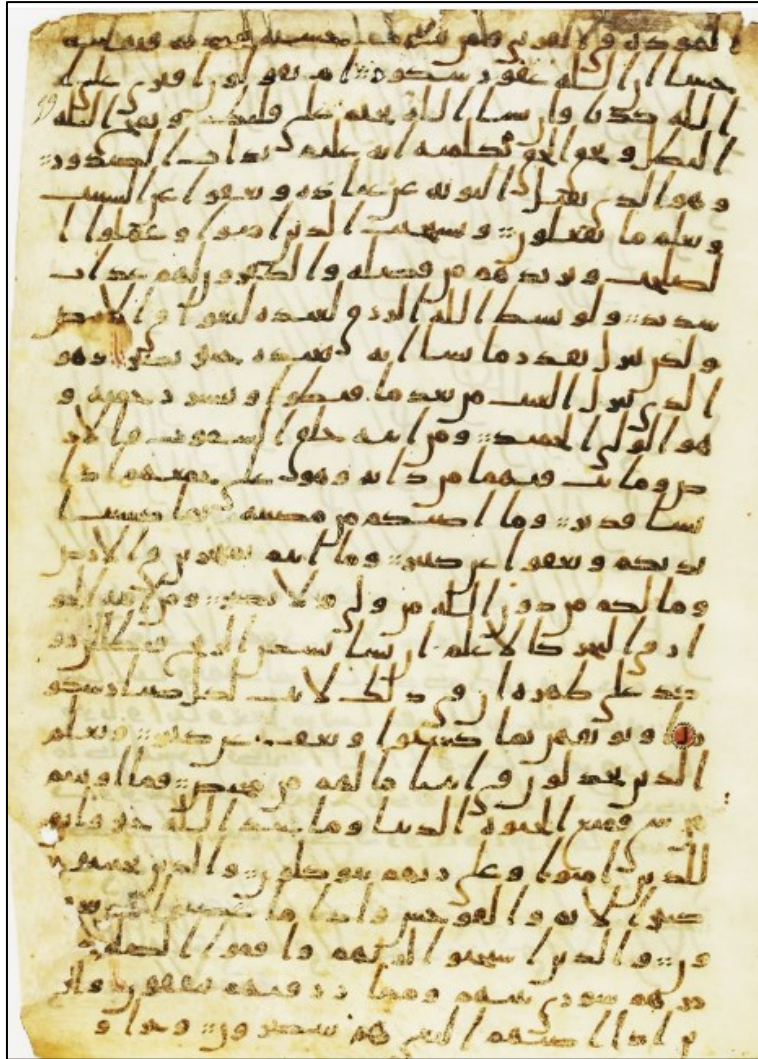 ا لموده في القربى ومن يقترف حسنه نزد له فيها
حسنا ان الله غفور شكور :: ام يقولون افترى على
الله كذبا فان يشا الله يختم على قلبك ويمح الله
البطل ويحق الحق بكلمته انه عليم بذات الصدور ::
وهو الذي يقبل التوبه عن عباده ويعفوا عن السيت
ويعلم ما تفعلون :: ويستجيب الذين امنوا وعملوا ا
لصلحت ويزيدهم من فضله والكفرون لهم عذاب
شديد :: ولو بسط الله الرزق لعبده لبغوا في الارض
ولكن ينزل بقدر ما يشا انه بعبده خبير بصير وهو
الذي ينزل الغيث من بعد ما قنطوا وينشر رحمته و
هو الولي الحميد :: ومن ايته خلق السموت والار
ض وما بث فيهما من دابه وهو على جمعهم اذا
يشا قدير :: وما اصبكم من مصيبه فبما كسبت ا
يديكم ويعفوا عن كثير :: وما انتم بمعجزين في الارض
وما لكم من دون الله من ولي ولا نصير :: ومن ايته الجو
ار في البحر كالاعلم ان يشا يسكن الريح فيظللن رو
كد على ظهره ان في ذلك لايت لكل صبار شكو
ر او يوبقهن بما كسبوا ويعف عن كثير :: ويعلم
الذين يجدلون في ايتنا ما لهم من محيص :: فما اوتيتم
من شي فمتع الحيوه الدنيا وما عند الله خير وابقى
للذين امنوا وعلى ربهم يتوكلون :: والذين يجتنبون
كبير الاثم والفوحش واذا ما غضبوا هم يغفر
ون :: والذين استجبوا لربهم واقموا الصلوه وا
مرهم شورى بينهم ومما رزقنهم ينفقون :: والذ
ين اذا اصبهم البغي هم ينتصرون :: وجزاو